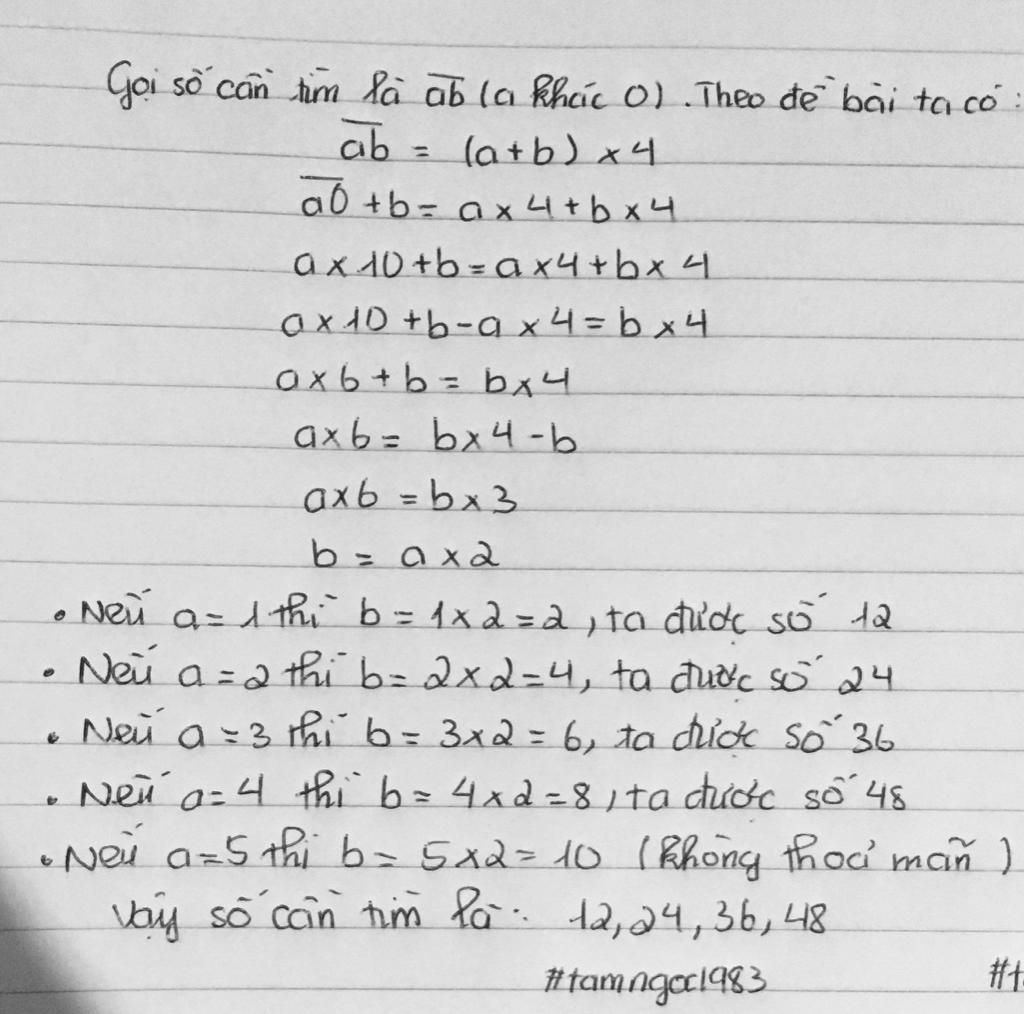 Gọi số cần tìm là ab (a khác 0). Theo đề bài ta có:
ab = (a+b) × 4
a0 + b = a × 4 + b × 4
a × 10 + b = a × 4 + b × 4
a × 10 + b - a × 4 = b × 4
a × 6 + b = b × 4
a × 6 = b × 4 - b
a × 6 = b × 3
b = a × 2
• Nếu a = 1 thì b = 1 × 2 = 2, ta được số 12
• Nếu a = 2 thì b = 2 × 2 = 4, ta được số 24
• Nếu a = 3 thì b = 3 × 2 = 6, ta được số 36
• Nếu a = 4 thì b = 4 × 2 = 8, ta được số 48
• Nếu a = 5 thì b = 5 × 2 = 10 (không thoả mãn)
Vậy số cần tìm là: 12, 24, 36, 48
#tamngoc1983 #t